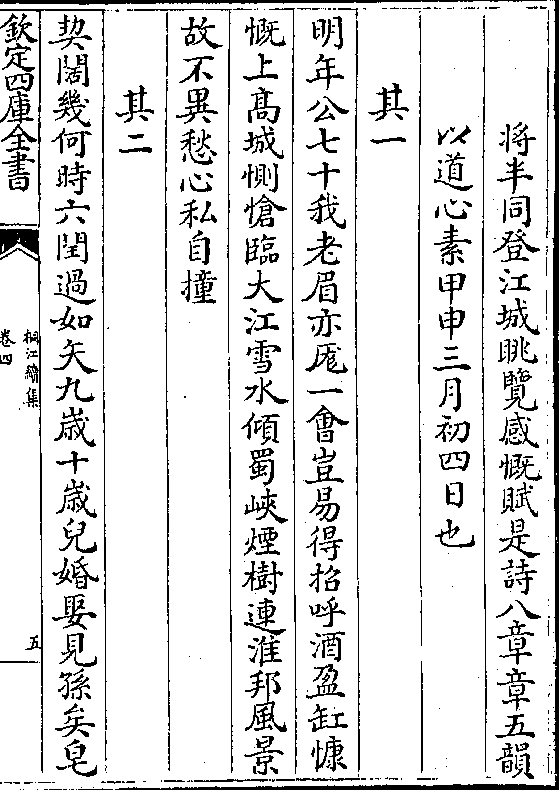 将半同登江城眺覽感慨賦是詩八章章五韻
以道心素甲申三月初四日也
其一
明年公七十我老眉亦厖一會豈易得招呼酒盈缸慷
慨上髙城惻愴臨大江雪水傾蜀峽煙樹連淮邦風景
故不異愁心私自撞
其二
契闊幾何時六閏過如矢九歳十歳兒婚娶見孫矣皂
欽定四庫全書
桐江續集
卷四
五